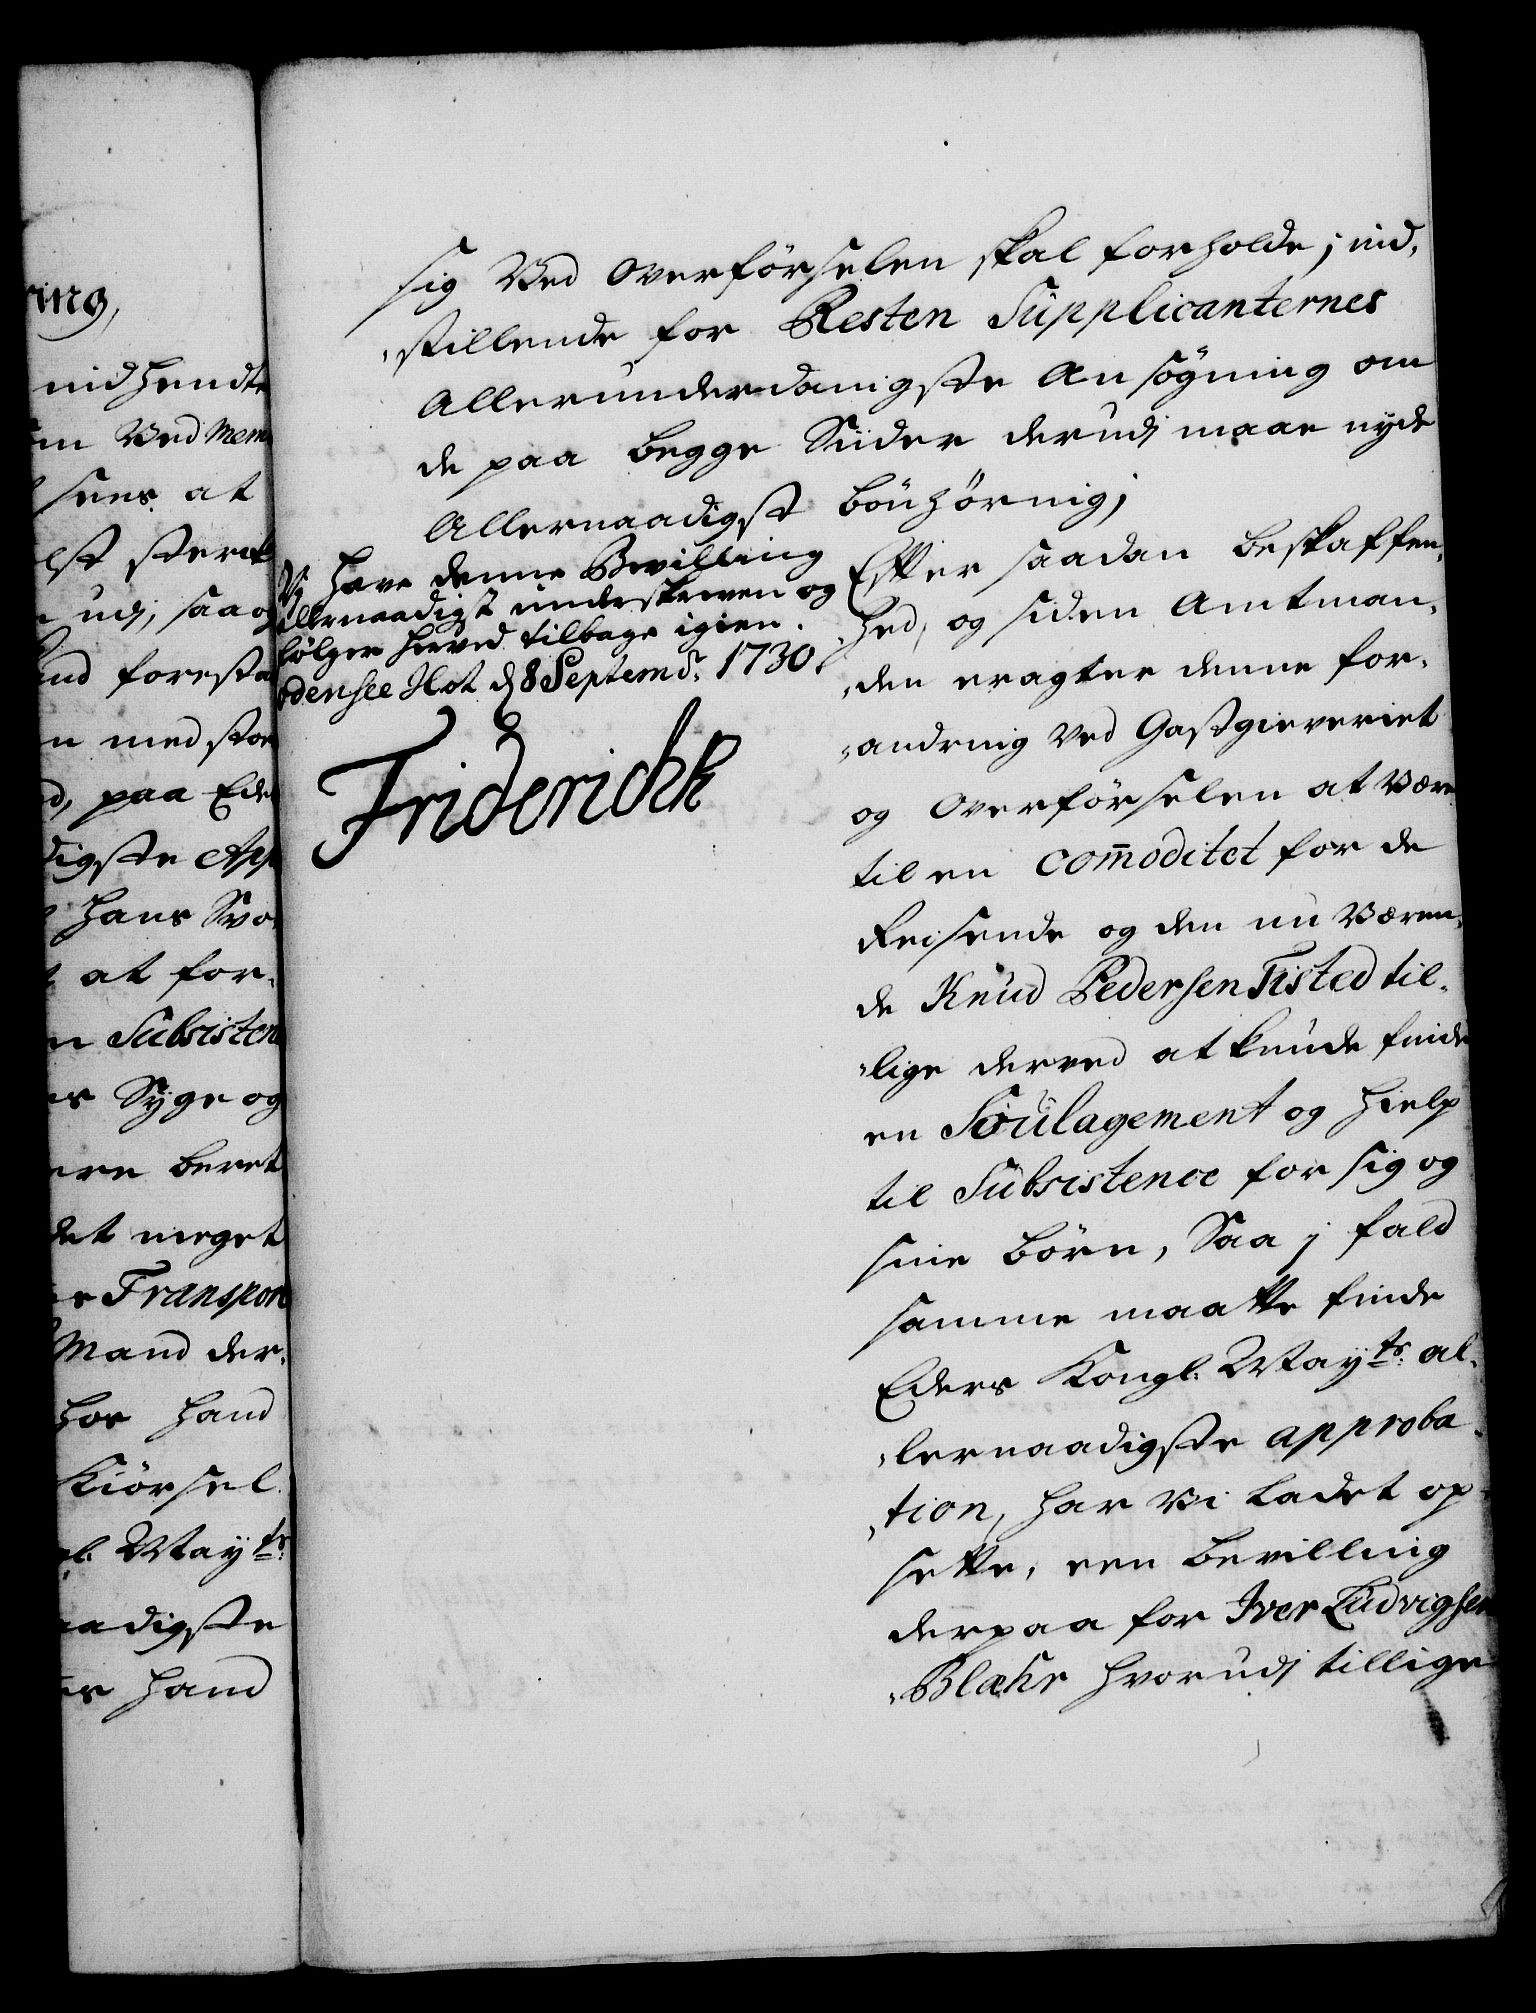 ring,
indhendte
Ved Mem
sees at
sterck
udj, saa og
foresta
med stor
paa Ede
digste App
Hans Svo
at for-
Subsisten
Syge og
beret
det meget
Transport
Mand der-
hos Hand
Kiörsel
Mayts:
aadigste
Hand
sig Ved Overförselen skal forholde; ind-
stillende for Resten Supplicanternes
Allerunderdanigste Ansögning om
de paa begge Siider derudj maae nyde
Allernaadigst bönhörnig;
Vj Have denne Bevilling
allernaadigst underskreven og
fölger herved tilbage igien.
Odensee Slot d 8 Septembr: 1730.
Friderich R
Efter saadan beskaffen-
hed, og siden Amtman-
den eragter denne for-
andring Ved Gastgieveriet
og Overförselen at Være
til en Com̄oditet for de
Reisende og den nu Væren-
de Knud Pedersen Tisted til-
lige derved at kunde finde
en Soulagement og Hielp
til Subsistence for sig og
sine Börn, Saa j fald
samme maatte finde
Eders Kongl: Mayts: al-
lernaadigste approba-
tion, har Vi Ladet op-
sette, een Bevilling
derpaa for Iver Ludvigsen
Blæhr hvorudj tillige